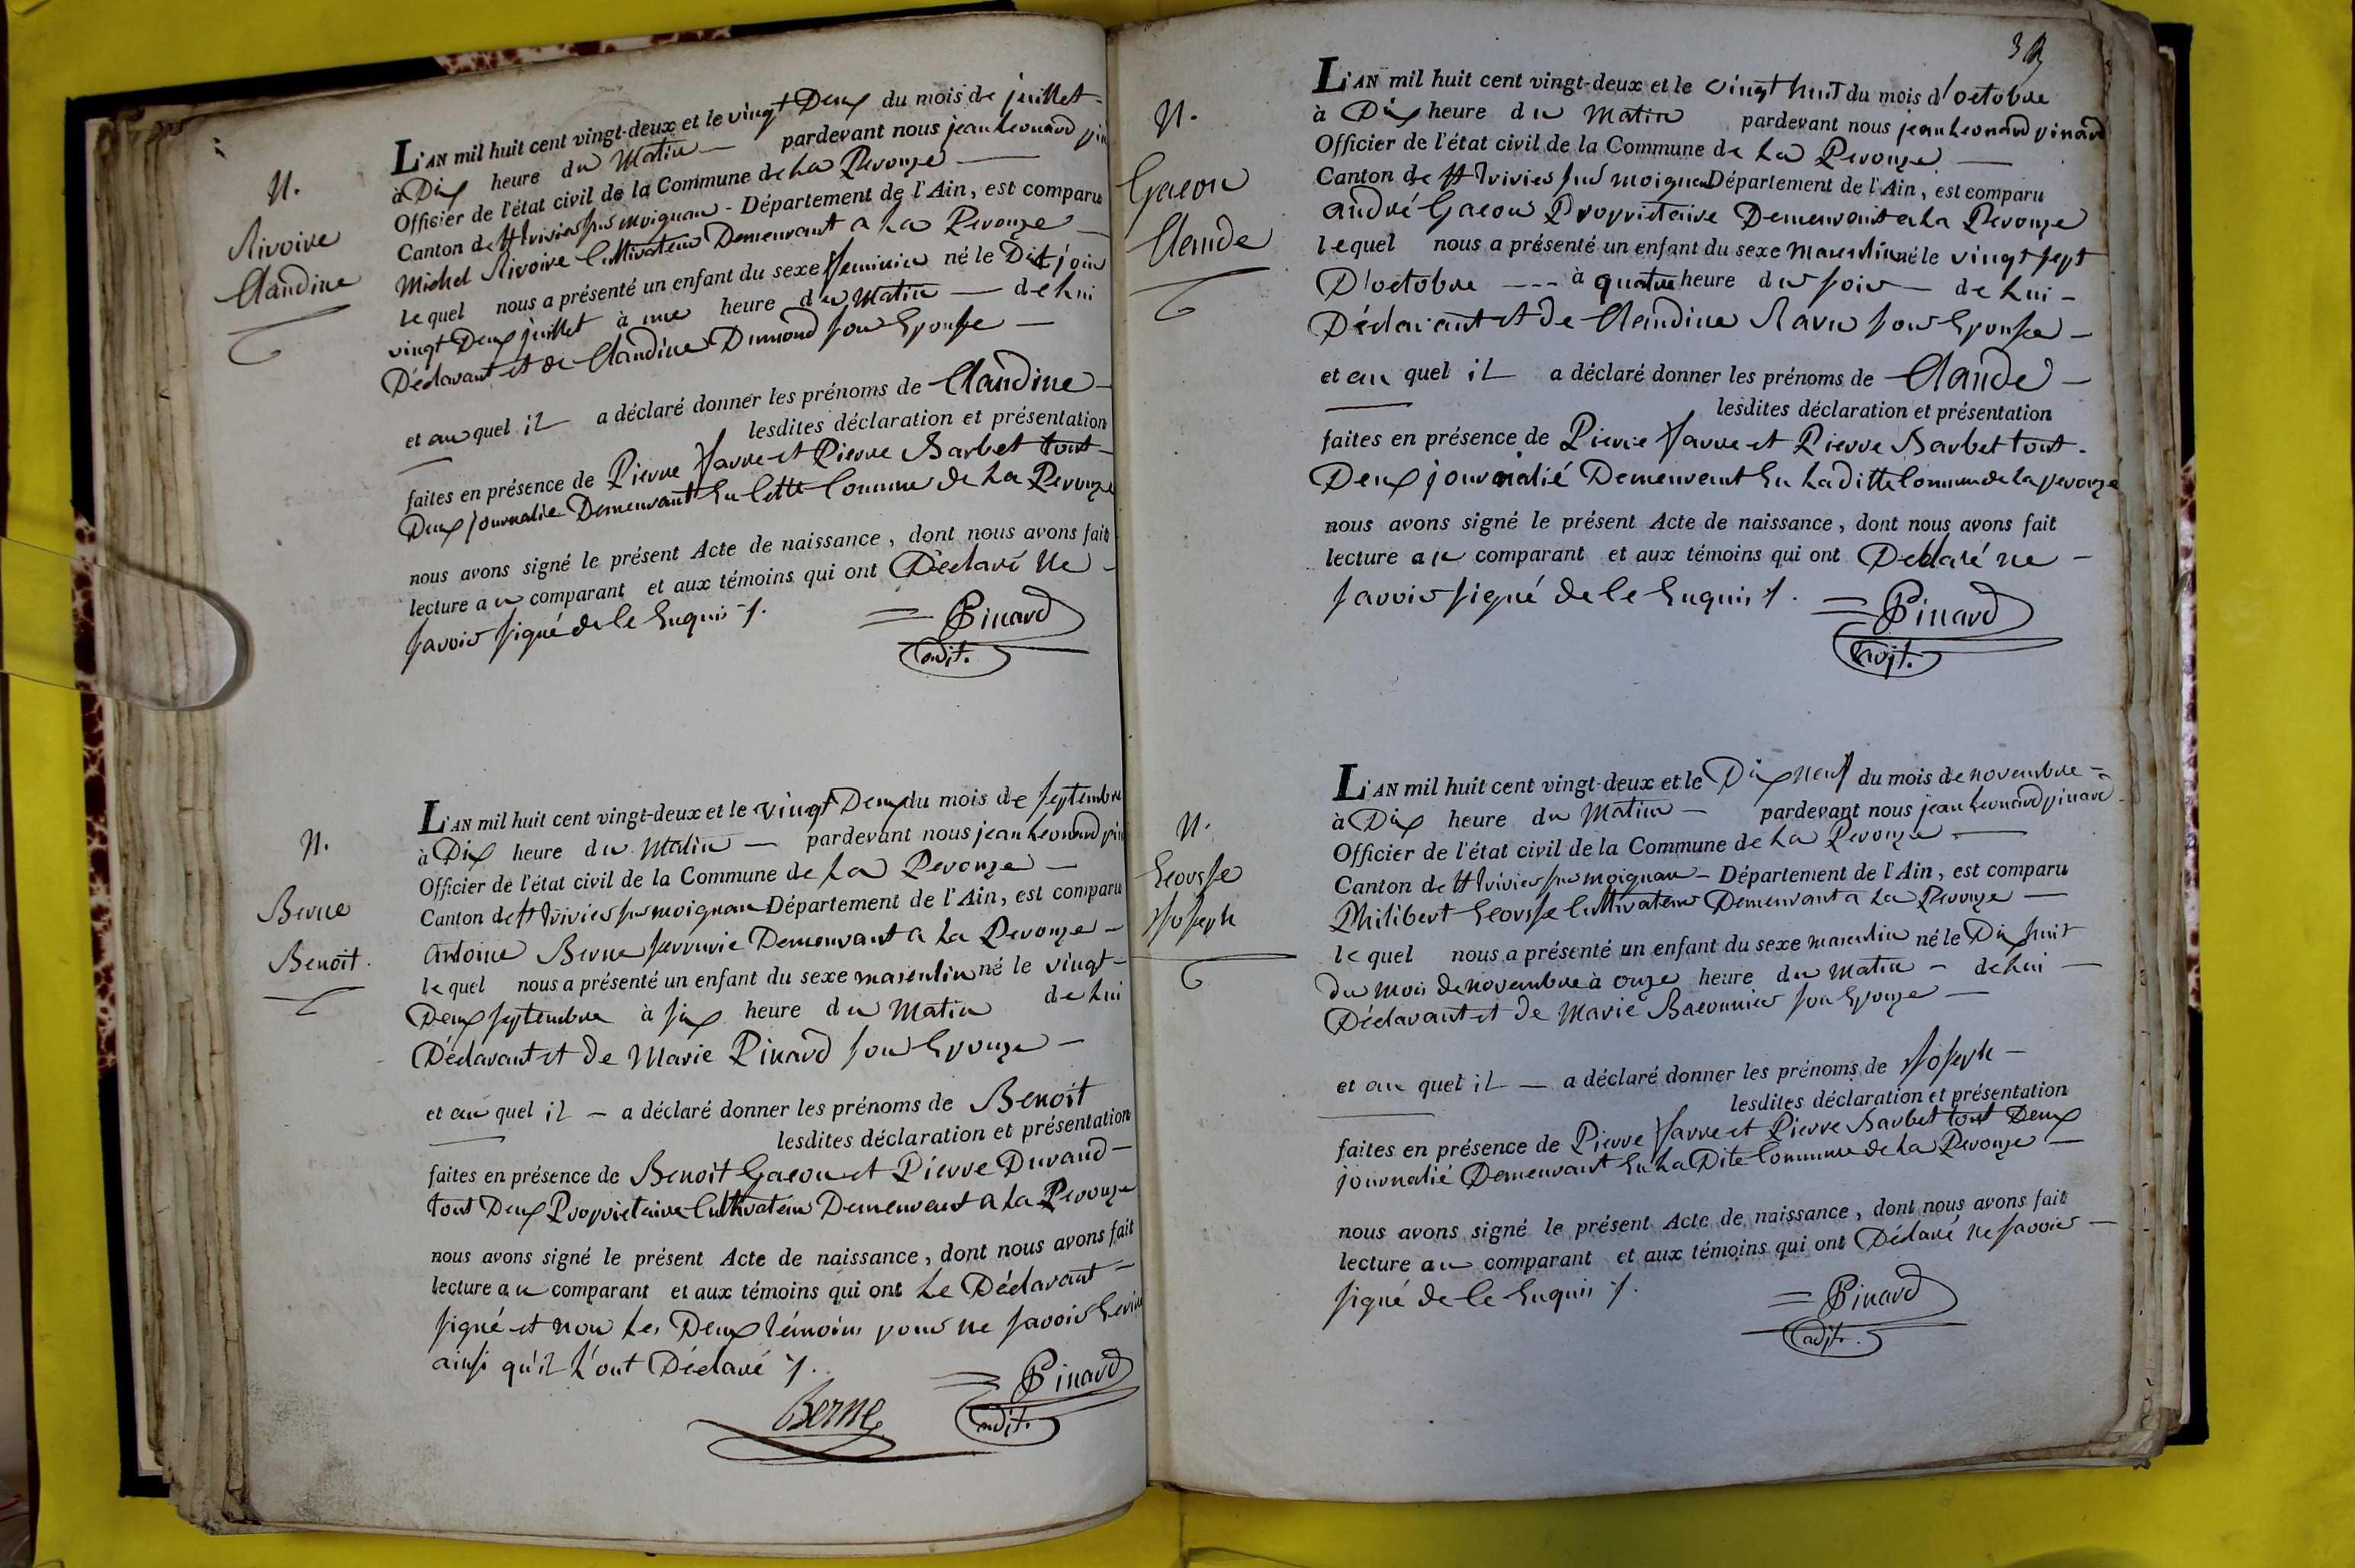 N.
Rivoire
Claudine
L'AN mil huit cent vingt-deux et le vingt Deux du mois de juillet -
à Dix heure du Matin — pardevant nous jean Leonard pin
Officier de l'état civil de la Commune de La Perouze —
Canton de St trivier sur moignan - Département de l'Ain, est comparu
Michel Rivoire Cultivateur Demeurant a La Perouze —
lequel nous a présenté un enfant du sexe feminin né le Dit jour
vingt Deux juillet à une heure du Matin — de lui
Déclarant et de Claudine Dumond son Epousse —
et au quel il a déclaré donner les prénoms de Claudine —
lesdites déclaration et présentation
faites en présence de Pierre Favre et Pierre Barbet tout -
Deux journalié Demeurant En Cette Commune de La Perouze
nous avons signé le présent Acte de naissance, dont nous avons fait
lecture au comparant et aux témoins qui ont Déclaré Ne -
savoir signé de le Enquis /.
= Pinard
adjt.
N.
Berne
Benoit.
L'AN mil huit cent vingt-deux et le vingt Deux du mois de septembre
à Dix heure du Matin — pardevant nous jean Leonard pin
Officier de l'état civil de la Commune de La Perouze —
Canton de St trivier sur moignan Département de l'Ain, est comparu
Antoine Berne serrurié Demeurant a La Perouze -
lequel nous a présenté un enfant du sexe masculin né le vingt -
Deux septembre à six heure du Matin de lui
Déclarant et de Marie Pinard son Epouze —
et au quel il — a déclaré donner les prénoms de Benoit
lesdites déclaration et présentation
faites en présence de Benoit Gacon et Pierre Durand —
tout Deux Proprietaire Cultivateur Demeurant a La Perouze
nous avons signé le présent Acte de naissance, dont nous avons fait
lecture au comparant et aux témoins qui ont Le Déclarant —
signé et non Les Deux témoins pour ne savoir Ecrire
ainsi qu'il L'ont Déclaré /.
= Pinard
Berne
adjt.
N.
Gacon
Claude
L'AN mil huit cent vingt-deux et le vingt huit du mois d'octobre
à Dix heure du Matin pardevant nous jean Leonard pinard
Officier de l'état civil de la Commune de La Perouze —
Canton de St trivier sur moignan Département de l'Ain, est comparu
andré Gacon Proprietaire Demeurant a La Perouze
lequel nous a présenté un enfant du sexe masculin né le vingt sept
D'octobre --- à quatre heure du soir — de lui -
Déclarant et de Claudine Ravu son Epousse -
et au quel il a déclaré donner les prénoms de Claude —
lesdites déclaration et présentation
faites en présence de Pierre Favre et Pierre Barbet tout -
Deux journalié Demeurant En La ditte Commune de La perouze
nous avons signé le présent Acte de naissance, dont nous avons fait
lecture au comparant et aux témoins qui ont Déclaré ne -
savoir signé de le Enquis /.
= Pinard
adjt.
N.
Ecousse
Joseph
L'AN mil huit cent vingt-deux et le Dix neuf du mois de novembre -
à Dix heure du Matin — pardevant nous jean Leonard pinard
Officier de l'état civil de la Commune de La Perouze —
Canton de St trivier sur moignan - Département de l'Ain, est comparu
Philibert Ecousse Cultivateur Demeurant a La Perouze —
lequel nous a présenté un enfant du sexe masculin né le Dix huit
du mois de novembre à onze heure du Matin - de lui —
Déclarant et de Marie Baconnier son Epouze —
et au quel il — a déclaré donner les prénoms de Joseph —
lesdites déclaration et présentation
faites en présence de Pierre Favre et Pierre Barbet tout Deux
journalié Demeurant En La Dite Commune de La Perouze —
nous avons signé le présent Acte de naissance, dont nous avons fait
lecture au comparant et aux témoins qui ont Déclaré ne savoir —
signé de le Enquis /.
= Pinard
adjt.